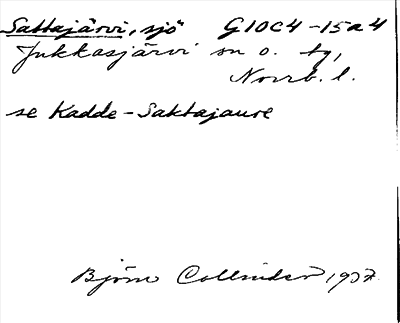 Sattajärvi, sjö G10C4-15a4
Jukkasjärvi sn o. tg,
Norrb. l.
se Kadde-Saktajaure
Björn Collinder 1937